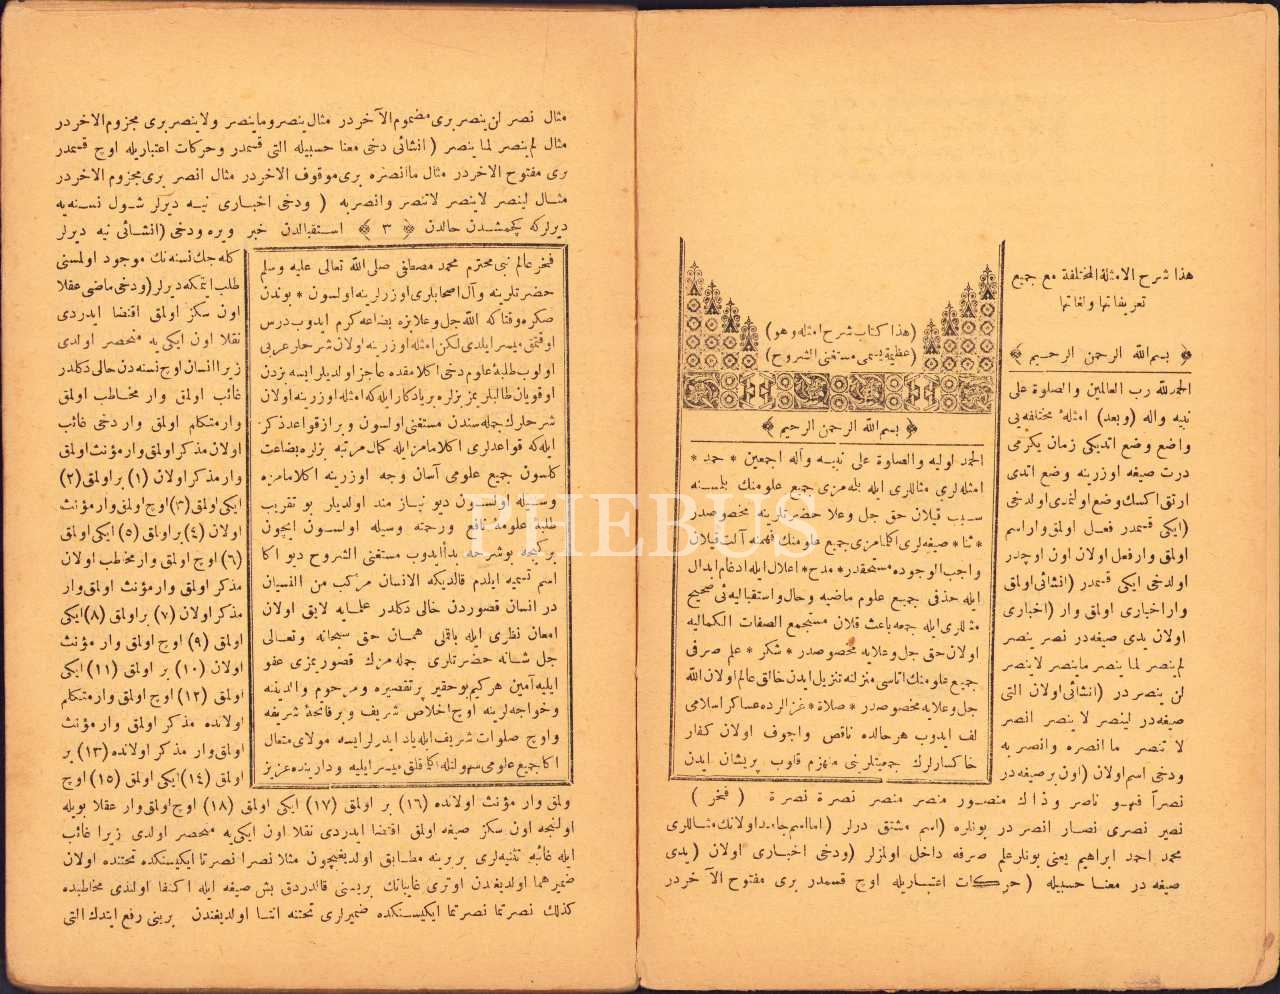 هذا شرح الامثلة المختلفة مع جميع
تعريفاتها ولغاتها
﴿ بسم الله الرحمن الرحيم ﴾
الحمد لله رب العالمين والصلوة على
نبيه واله (وبعد) امثلهٔ مختلفه يى
واضع وضع اتديكى زمان يكرمى
درت صيغه اوزرينه وضع اتدى
ارتق اكسك وضع اولنمدى اولدخى
(ايكى قسمدر فعل اولمق واراسم
اولمق وارفعل اولان اون اوچدر
اولدخى ايكى قسمدر (انشائى اولمق
واراخبارى اولمق وار (اخبارى
اولان يدى صيغه در نصر ينصر
لم ينصر لما ينصر ماينصر لاينصر
لن ينصر در (انشائى اولان التى
صيغه در لينصر لا ينصر انصر
لا تنصر ما انصره وانصر به
ودخى اسم اولان (اون بر صيغه در
نصرآ فهو ناصر وذاك منصور منصر منصر نصرة نصرة ( فخر )
نصير نصرى نصار انصر در بونلره (اسم مشتق درلر (اما اسم جامد اولانك مثاللرى
محمد احمد ابراهيم يعنى بونلر علم صرفه داخل اولمزلر (ودخى اخبارى اولان (يدى
صيغه در معنا حسبيله ( حركات اعتباريله اوچ قسمدر برى مفتوح الآخر در
(هذا كتاب شرح امثله وهو)
(عظيمة يسمى مستغنى الشروح)
﴿ بسم الله الرحمن الرحيم ﴾
الحمد لوليه والصلوة على نبيه وآله اجمعين * حمد *
امثله لرى مثاللرى ايله بله مزى جميع علومنك بلمسنه
سبب قيلان حق جل وعلا حضرتلرينه مخصوصدر
* ثنا * صيغه لرى اكلامزى جميع علومنك فهمنه آلت قيلان
واجب الوجوده مستحقدر * مدح * اعلال ايله ادغام ابدال
ايله حذفى جميع علوم ماضيه وحال واستقباليه ئى صحيح
مثاللرى ايله جمعه باعث قيلان مستجمع الصفات الكماليه
اولان حق جل وعلايه مخصوصدر * شكر * علم صرفى
جميع علومنك اناسى منزلنه تنزيل ايدن خالق عالم اولان الله
جل وعلايه مخصوصدر * صلاة * غزالرده عساكر اسلامى
لف ايدوب هر حالده ناقص واجوف اولان كفار
خاكسارلرك جمعيتلرينى منهزم قلوب پريشان ايدن
مثال نصر لن ينصر برى مضموم الآخر در مثال ينصر وماينصر ولاينصر برى مجزوم الاخر در
مثال لم ينصر لما ينصر ( انشائى دخى معنا حسبيله التى قسمدر وحركات اعتباريله اوچ قسمدر
برى مفتوح الاخر در مثال ماانصره برى موقوف الاخر در مثال انصر برى مجزوم الاخر در
مثال لينصر لاينصر لاتنصر وانصر به ( ودخى اخبارى نيه ديرلر شول نسنه يه
ديرلر كه كچمشدن حالدن ﴿ ٣ ﴾ استقبالدن خبر ويره ودخى (انشائى نيه ديرلر
فخر عالم نبى محترم محمد مصطفى صلى الله تعالى عليه وسلم
حضرتلرينه وآل اصحابلرى اوزرلرينه اولسون * بوندن
صكره وقتاكه الله جل وعلا بزه بضاعه كرم ايدوب درس
اوقتمق ميسر ايلدى لكن امثله اوزرينه اولان شرحلر عربى
اولوب طلبهٔ علوم دخى اكلامقده عاجز اولديلر ايسه بزدن
اوقويان طالبلريمز بزلره بر يادكار ايله كه امثله اوزرينه اولان
شرحلرك جمله سندن مستغنى اولسون و براز قواعد ذكر
ايله كه قواعدلرى اكلامامز ايله كمال مرتبه بزلره بضاعت
كلسون جميع علومى آسان وجه اوزرينه اكلامامزه
وسيله اولسون ديو نياز مند اولديلر بو تقريب
طلبهٔ علومه نافع ورحمته وسيله اولسون ايچون
بركيجه بوشرحه بدأ ايدوب مستغنى الشروح ديو اكا
اسم تسميه ايلدم قالديكه الانسان مركب من النسيان
در انسان قصوردن خالى دكلدر علمايه لايق اولان
امعان نظرى ايله باقملى همان حق سبحانه وتعالى
جل شانه حضرتلرى جمله مزك قصوريمزى عفو
ايليه آمين هركيم بو حقير پر تقصيره ومرحوم والدينه
وخواجه لرينه اوچ اخلاص شريف و بر فاتحهٔ شريفه
واوچ صلوات شريف ايله ياد ايدرلر ايسه مولاى متعال
اكا جميع علومى سهولتله اكلامقلق ميسر ايليه ودارينده عزيز
كله جك نسنه نك موجود اولمسنى
طلب ايتمكه ديرلر (ودخى ماضى عقلا
اون سكز اولمق اقتضا ايدردى
نقلا اون ايكى يه منحصر اولدى
زيرا انسان اوچ نسنه دن خالى دكلدر
غائب اولمق وار مخاطب اولمق
وارمتكلم اولمق وار دخى غائب
اولان مذكر اولمق وارمؤنث اولمق
وارمذكر اولان (١) براولمق (٢)
ايكى اولمق (٣) اوچ اولمق وارمؤنث
اولان (٤) براولمق (٥) ايكى اولمق
(٦) اوچ اولمق وارمخاطب اولان
مذكر اولمق وارمؤنث اولمق وار
مذكر اولان (٧) براولمق (٨) ايكى
اولمق (٩) اوچ اولمق وار مؤنث
اولان (١٠) بر اولمق (١١) ايكى
اولمق (١٢) اوچ اولمق وارمتكلم
اولانده مذكر اولمق وار مؤنث
اولمق وار مذكر اولانده (١٣) بر
اولمق (١٤) ايكى اولمق (١٥) اوچ
ولمق وار مؤنث اولانده (١٦) بر اولمق (١٧) ايكى اولمق (١٨) اوچ اولمق وار عقلا بويله
اولنجه اون سكز صيغه اولمق اقتضا ايدردى نقلا اون ايكى يه منحصر اولدى زيرا غائب
ايله غائبه تثنيه لرى بر برينه مطابق اولديغيچون مثلا نصرا نصرتا ايكيسنكده تحتنده اولان
ضمير هما اولديغندن اوترى غائباتك بريسنى قالدردق بش صيغه ايله اكتفا اولندى مخاطبده
كذلك نصرتما نصرتما ايكيسنكده ضميرلرى تحتنه انتما اولديغندن برينى رفع ايتدك التى
PHEBUS